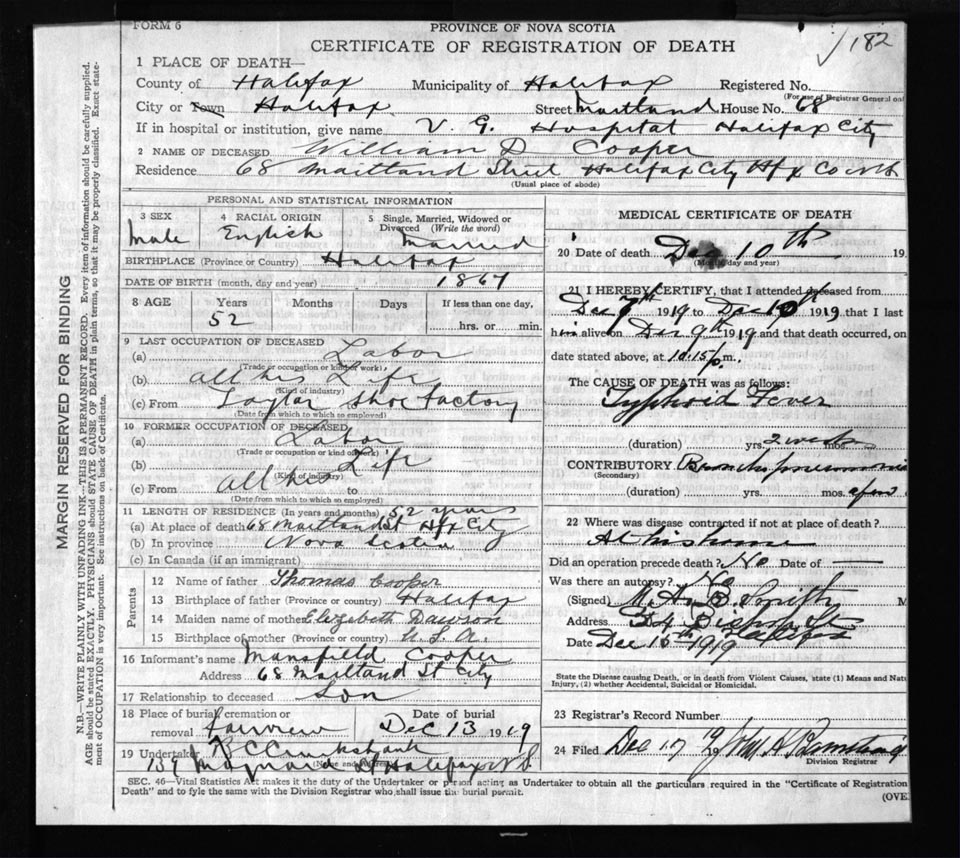 FORM 6
PROVINCE OF NOVA SCOTIA
CERTIFICATE OF REGISTRATION OF DEATH
182
1 PLACE OF DEATH—
County of Halifax Municipality of Halifax Registered No.
(For use of Registrar General on
City or Town Halifax Street Maitland House No. 68
If in hospital or institution, give name V. G. Hospital Halifax City
2 NAME OF DECEASED William D Cooper
Residence 68 Maitland Street Halifax City Hfx Co N S
(Usual place of abode)
PERSONAL AND STATISTICAL INFORMATION
3 SEX 4 RACIAL ORIGIN 5 Single, Married, Widowed or Divorced (Write the word)
Male English Married
BIRTHPLACE (Province or Country) Halifax
DATE OF BIRTH (month, day and year) 1867
8 AGE Years Months Days If less than one day,
52 hrs. or min.
9 LAST OCCUPATION OF DECEASED
(a) Labor
(Trade or occupation or kind of work)
(b) all his Life
(Kind of industry)
(c) From Taylor Shoe Factory
(Date from which to which so employed)
10 FORMER OCCUPATION OF DECEASED
(a) Labor
(Trade or occupation or kind of work)
(b) Life
(Kind of industry)
(c) From all his to
(Date from which to which so employed)
11 LENGTH OF RESIDENCE (In years and months) 52 years
(a) At place of death 68 Maitland St Hfx City
(b) In province Nova Scotia
(c) In Canada (if an immigrant)
Parents
12 Name of father Thomas Cooper
13 Birthplace of father (Province or country) Halifax
14 Maiden name of mother Elizabeth Dawson
15 Birthplace of mother (Province or country) U.S.A.
16 Informant's name Mansfield Cooper
Address 68 Maitland St City
17 Relationship to deceased Son
18 Place of burial, cremation or removal Fairview Date of burial Dec 13 1919
19 Undertaker
(Name and address)
Maynard St Halifax N S
MEDICAL CERTIFICATE OF DEATH
20 Date of death Dec 10th 19
(Month, day and year)
21 I HEREBY CERTIFY, that I attended deceased from
Dec 7th 1919 to Dec 10th 1919 that I last
him alive on Dec 9th 1919 and that death occurred, on
date stated above, at 10.15 p.m.
The CAUSE OF DEATH was as follows:
Typhoid Fever
(duration) yrs. 2 weeks mos.
CONTRIBUTORY Bronchopneumonia
(Secondary)
(duration) yrs. mos.
22 Where was disease contracted if not at place of death?
At his home
Did an operation precede death? No Date of
Was there an autopsy? No
(Signed) M. A. B. Smith M
Address
Date Dec 15th 1919 Halifax
State the Disease causing Death, or in death from Violent Causes, state (1) Means and Natu
Injury, (2) whether Accidental, Suicidal or Homicidal.
23 Registrar's Record Number
24 Filed Dec 17 19
Division Registrar
SEC. 46—Vital Statistics Act makes it the duty of the Undertaker or person acting as Undertaker to obtain all the particulars required in the "Certificate of Registration
Death" and to fyle the same with the Division Registrar who shall issue the burial permit.
(OVE
MARGIN RESERVED FOR BINDING
N.B.—WRITE PLAINLY WITH UNFADING INK—THIS IS A PERMANENT RECORD. Every item of information should be carefully supplied.
AGE should be stated EXACTLY. PHYSICIANS should STATE CAUSE OF DEATH in plain terms, so that it may be properly classified. Exact state-
ment of OCCUPATION is very important. See instructions on back of Certificate.